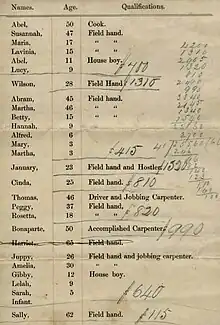 Names. Age. Qualifications.
Abel, 50 Cook.
Susannah, 47 Field hand.
Maria, 17 " "
Lavinia, 15 " "
Abel, 11 House boy.
Lucy, 9 $400
Wilson, 28 Field Hand. $1310
Abram, 45 Field hand.
Martha, 46 " "
Betty, 15 " "
Hannah, 9
Alfred, 6
Mary, 3
Martha, 3 $415
January, 23 Field hand and Hostler.
Cinda, 25 Field hand. $810
Thomas, 46 Driver and Jobbing Carpenter.
Peggy, 37 Field hand.
Rosetta, 18 " " $820
Bonaparte, 50 Accomplished Carpenter. $990
Harriet, 65 Field hand.
Juppy, 26 Field hand and jobbing carpenter.
Amelia, 30 " "
Gibby, 12 House boy.
Lelah, 9
Sarah, 5
Infant. $640
Sally, 62 Field hand. $115